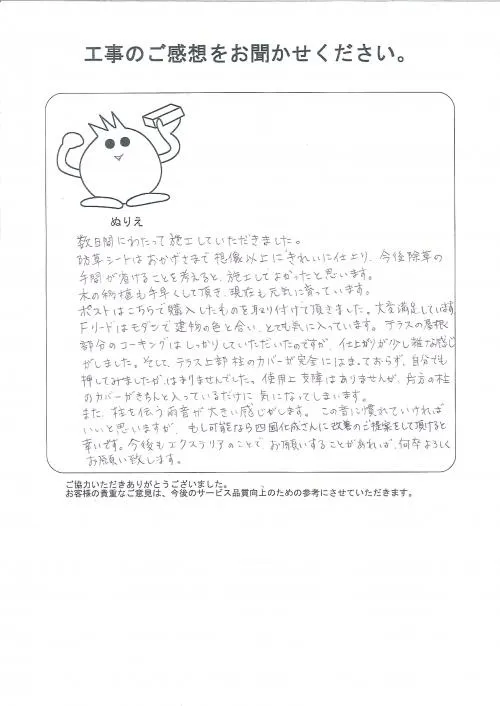 工事のご感想をお聞かせください。
ぬりえ
数日間にわたって施工していただきました。
防草シートはおかげさまで想像以上にきれいに仕上り、今後除草の
手間が省けることを考えると、施工してよかったと思います。
木の移植も手早くして頂き、現在も元気に育っています。
ポストはこちらで購入したものを取り付けて頂きました。大変満足しています。
Fリードはモダンで建物の色と合い、とても気に入っています。テラスの屋根
部分のコーキングはしっかりしていただいたのですが、仕上がりが少し雑な感じ
がしました。そして、テラス上部柱のカバーが完全にはまっておらず、自分でも
押してみましたが、はまりませんでした。使用上支障はありませんが、片方の柱
のカバーがきちんと入っているだけに気になってしまいます。
また、柱を伝う雨音が大きい感じがします。この音に慣れていければ
いいと思いますが、もし可能なら四国化成さんに改善のご提案をして頂けると
幸いです。今後もエクステリアのことでお願いすることがあれば、何卒よろしく
お願い致します。
ご協力いただきありがとうございました。
お客様の貴重なご意見は、今後のサービス品質向上のための参考にさせていただきます。